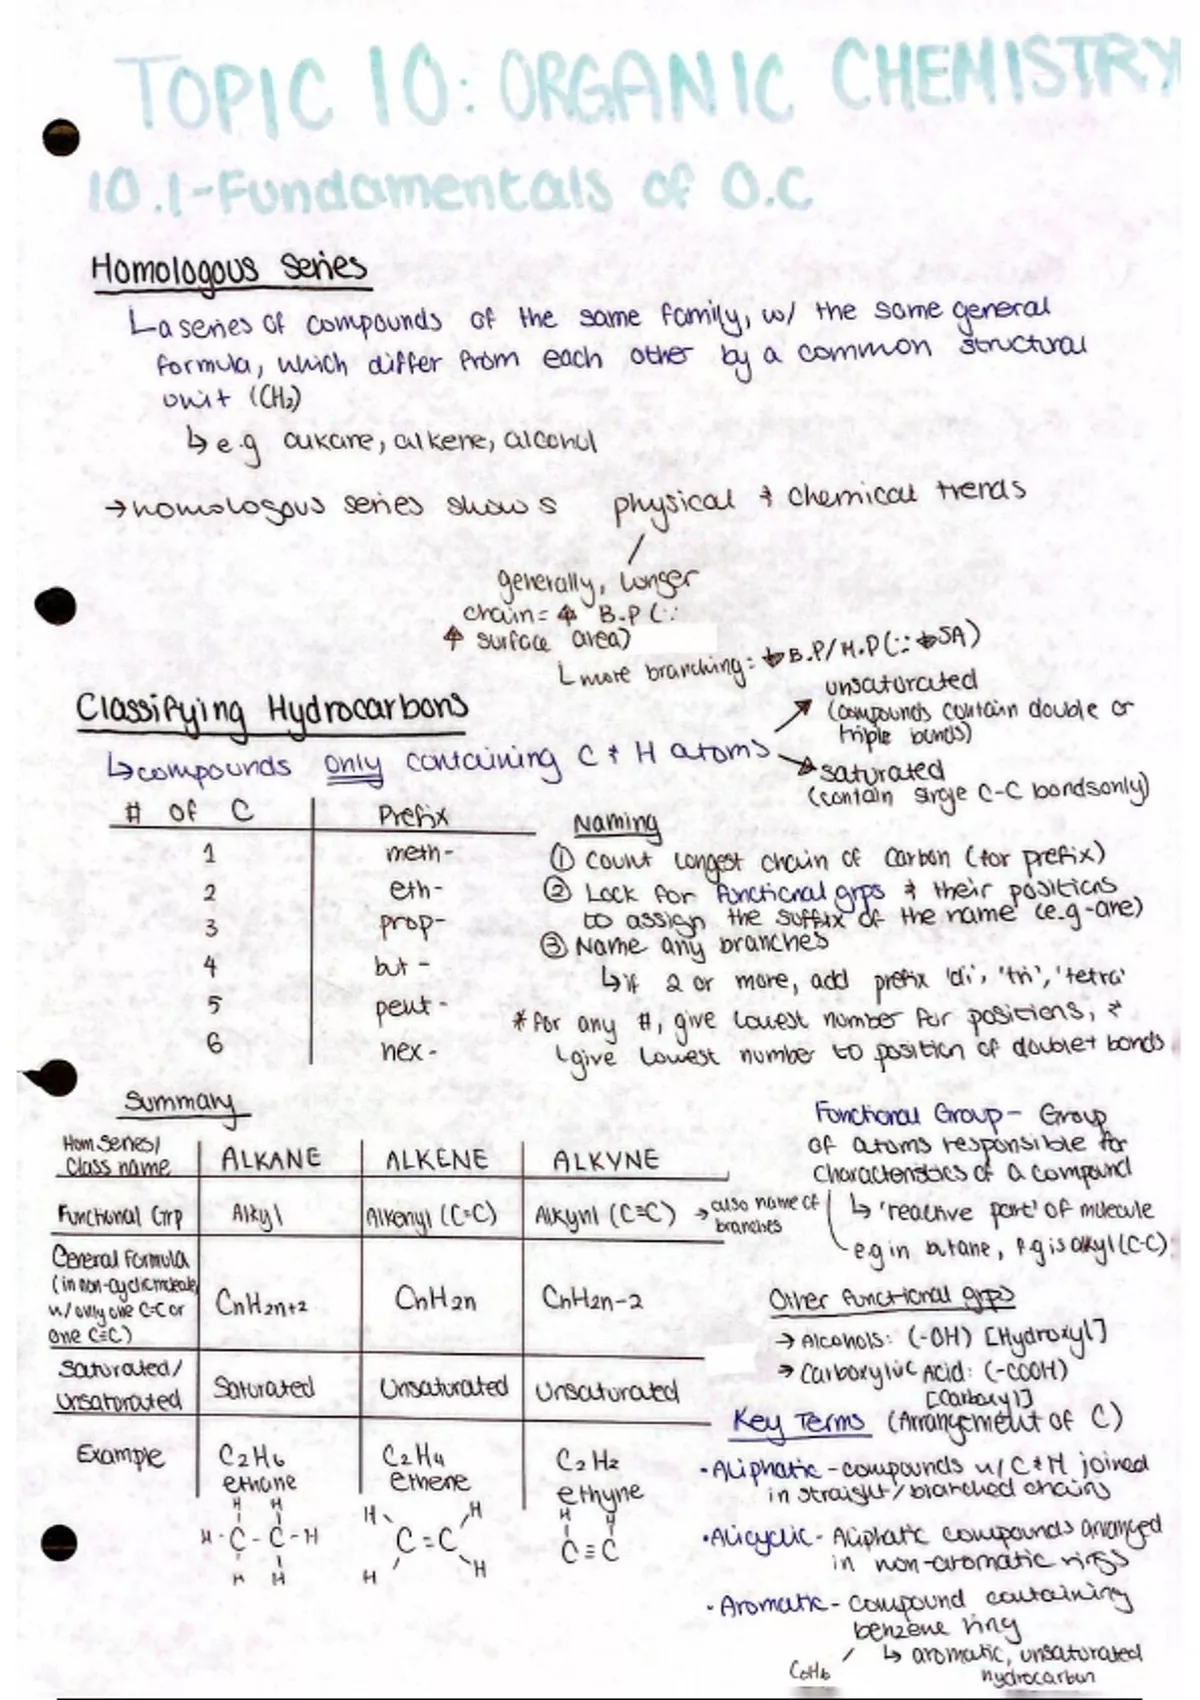 TOPIC 10: ORGANIC CHEMISTRY
10.1-Fundamentals of O.C
Homologous Series
↳a series of compounds of the same family, w/ the same general
formula, which differ from each other by a common structural
unit (CH₂)
↳e.g alkane, alkene, alcohol
→homologous series shows physical & chemical trends
generally, longer
chain = ↑ B.P (∵
↑ surface area)
↳more branching: ↓B.P/M.P (∵ ↓SA)
Classifying Hydrocarbons
↳compounds only containing C & H atoms
unsaturated
(compounds contain double or
triple bonds)
saturated
(contain single C-C bonds only)
# OF C Prefix
1 meth-
2 eth-
3 prop-
4 but-
5 pent-
6 hex-
Naming
① Count longest chain of carbon (for prefix)
② Look for functional grps & their positions
to assign the suffix of the name (e.g-ane)
③ Name any branches
↳if 2 or more, add prefix 'di', 'tri', 'tetra'
*for any #, give lowest number for positions, &
↳give lowest number to position of double+ bonds
Summary
Hom Series/
Class name ALKANE ALKENE ALKYNE
Functional Grp Alkyl Alkenyl (C=C) Alkynl (C≡C) → also name of
branches
General Formula
(in non-cyclic molecule,
w/ only one C=C or
one C≡C) CnH2n+2 CnH2n CnH2n-2
Saturated/
Unsaturated Saturated Unsaturated Unsaturated
Example C₂H₆ C₂H₄ C₂H₂
ethane ethene ethyne
H H
H-C-C-H
H H
H H
C=C
H H
H H
C≡C
Functional Group - Group
of atoms responsible for
characteristics of a compound
↳'reactive part' of molecule
e.g in butane, f.g is alkyl (C-C)
Other functional grps
→ Alcohols: (-OH) [Hydroxyl]
→ Carboxylic Acid: (-COOH)
[Carboxyl]
Key Terms (Arrangement of C)
·Aliphatic - compounds w/ C & H joined
in straight/branched chains
·Alicyclic - Aliphatic compounds arranged
in non-aromatic rings
·Aromatic - compound containing
benzene ring
C₆H₆ ↳ aromatic, unsaturated
hydrocarbon